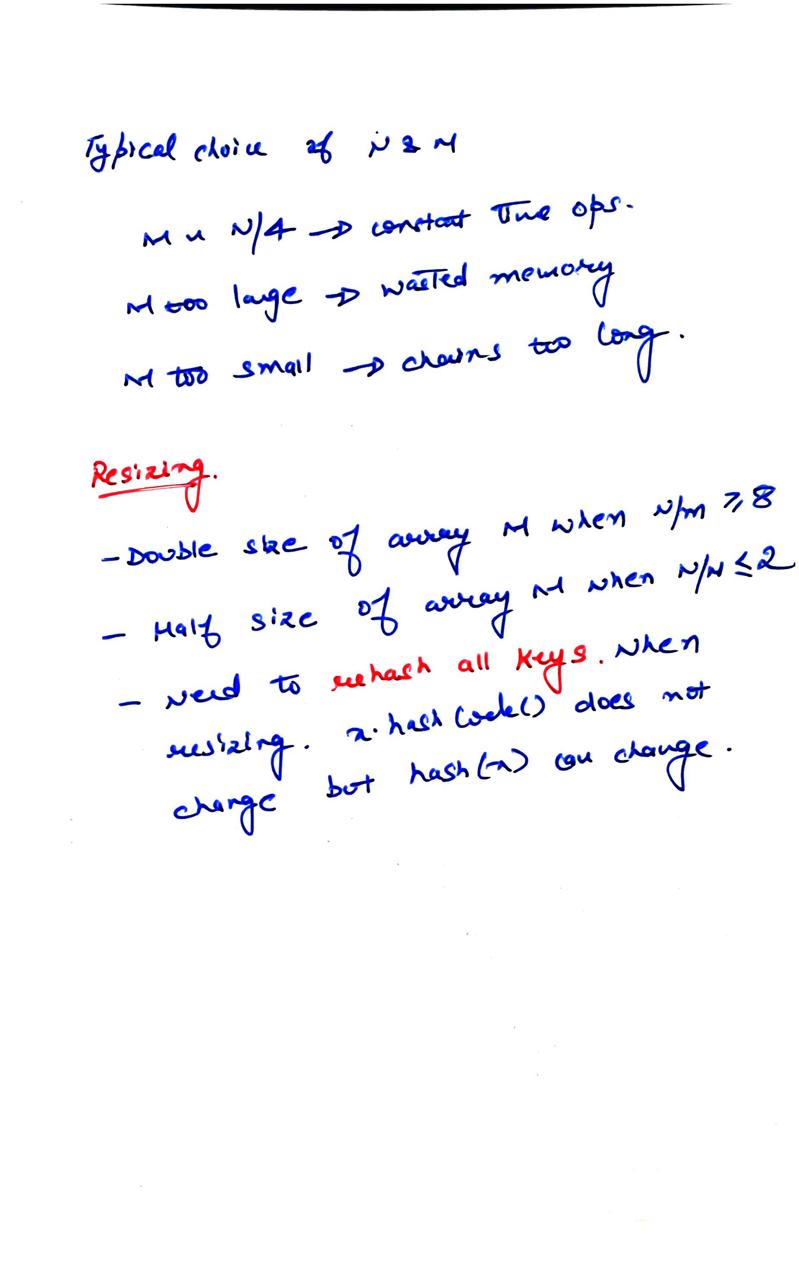 Typical choice of N & M
M ~ N/4 → constant time ops.
M too large → wasted memory
M too small → chains too long.
Resizing.
- Double size of array M when N/M ≥ 8
- Half size of array M when N/M ≤ 2
- Need to rehash all keys. when
resizing. x.hashCode() does not
change but hash(x) can change.